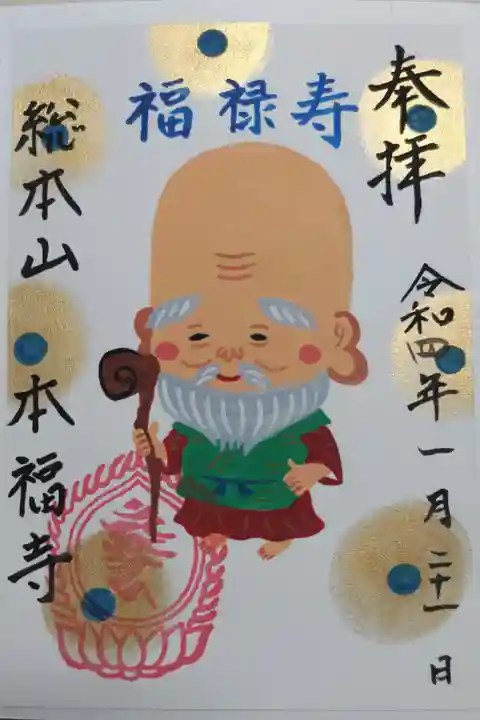 奉拝
令和四年一月二十一日
福禄寿
総本山 本福寺